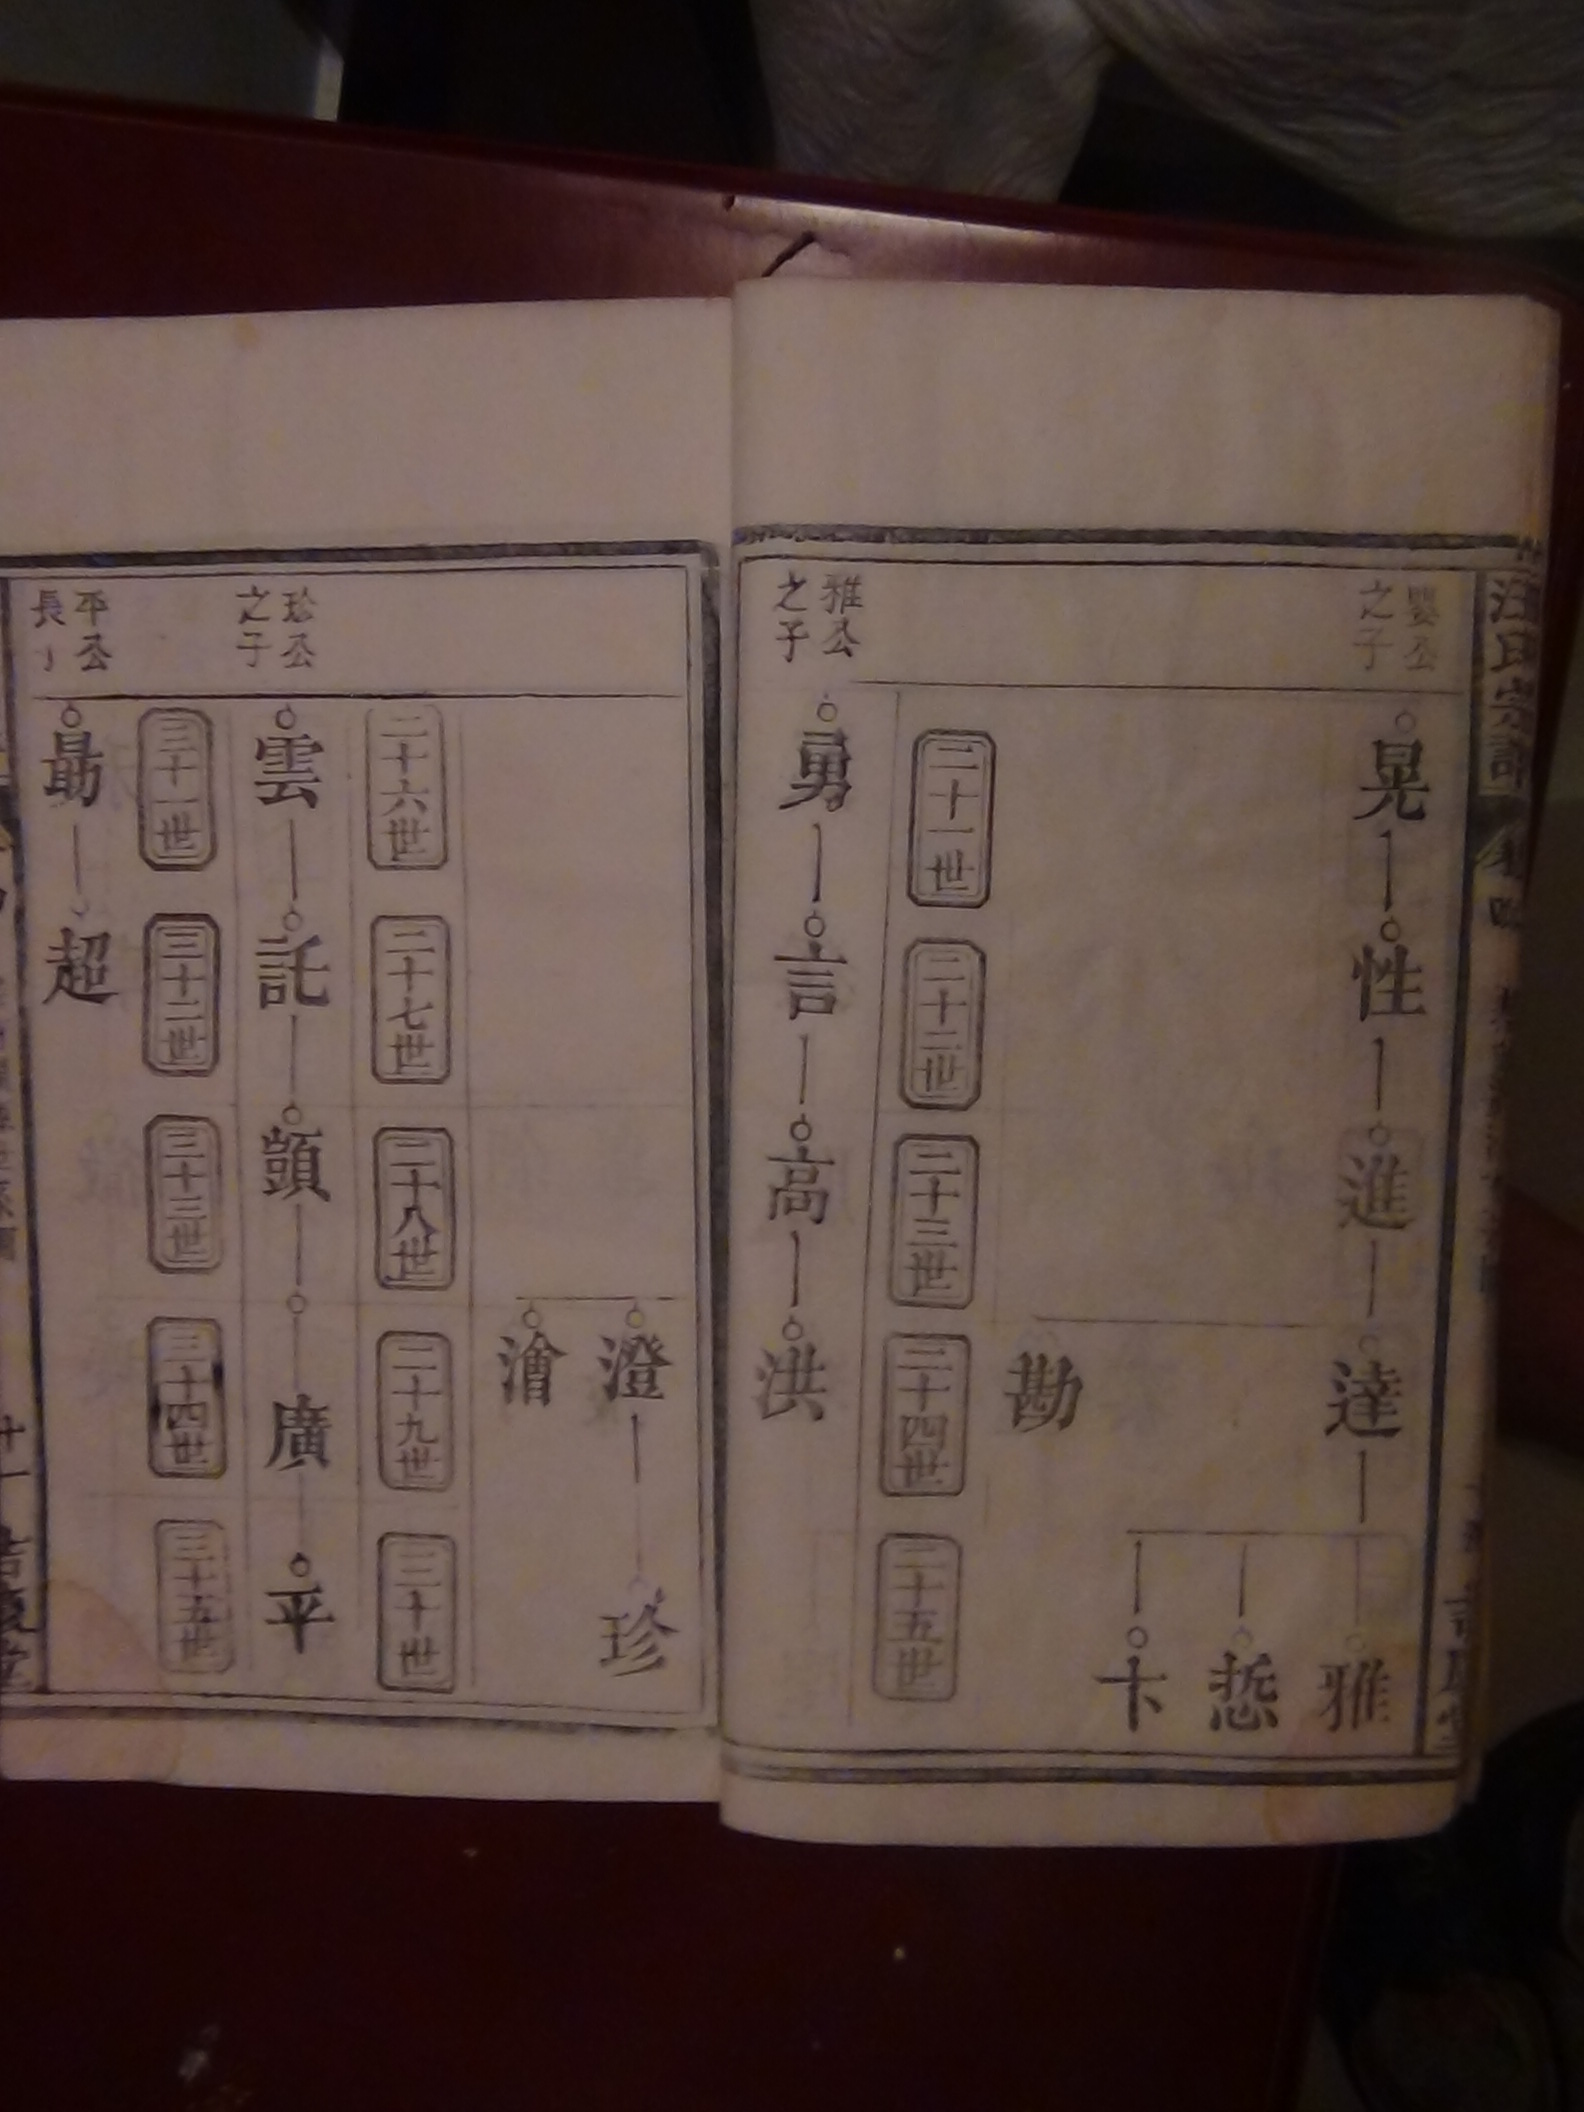 汪氏宗譜
晏公
之子
晃
性
進
達
勘
雅
悊
卞
二十一世
二十二世
二十三世
二十四世
二十五世
雅公
之子
勇
言
高
洪
澄
澮
珍
二十六世
二十七世
二十八世
二十九世
三十世
珍公
之子
雲
託
顗
廣
平
三十一世
三十二世
三十三世
三十四世
三十五世
平公
長
勗
超
廿一